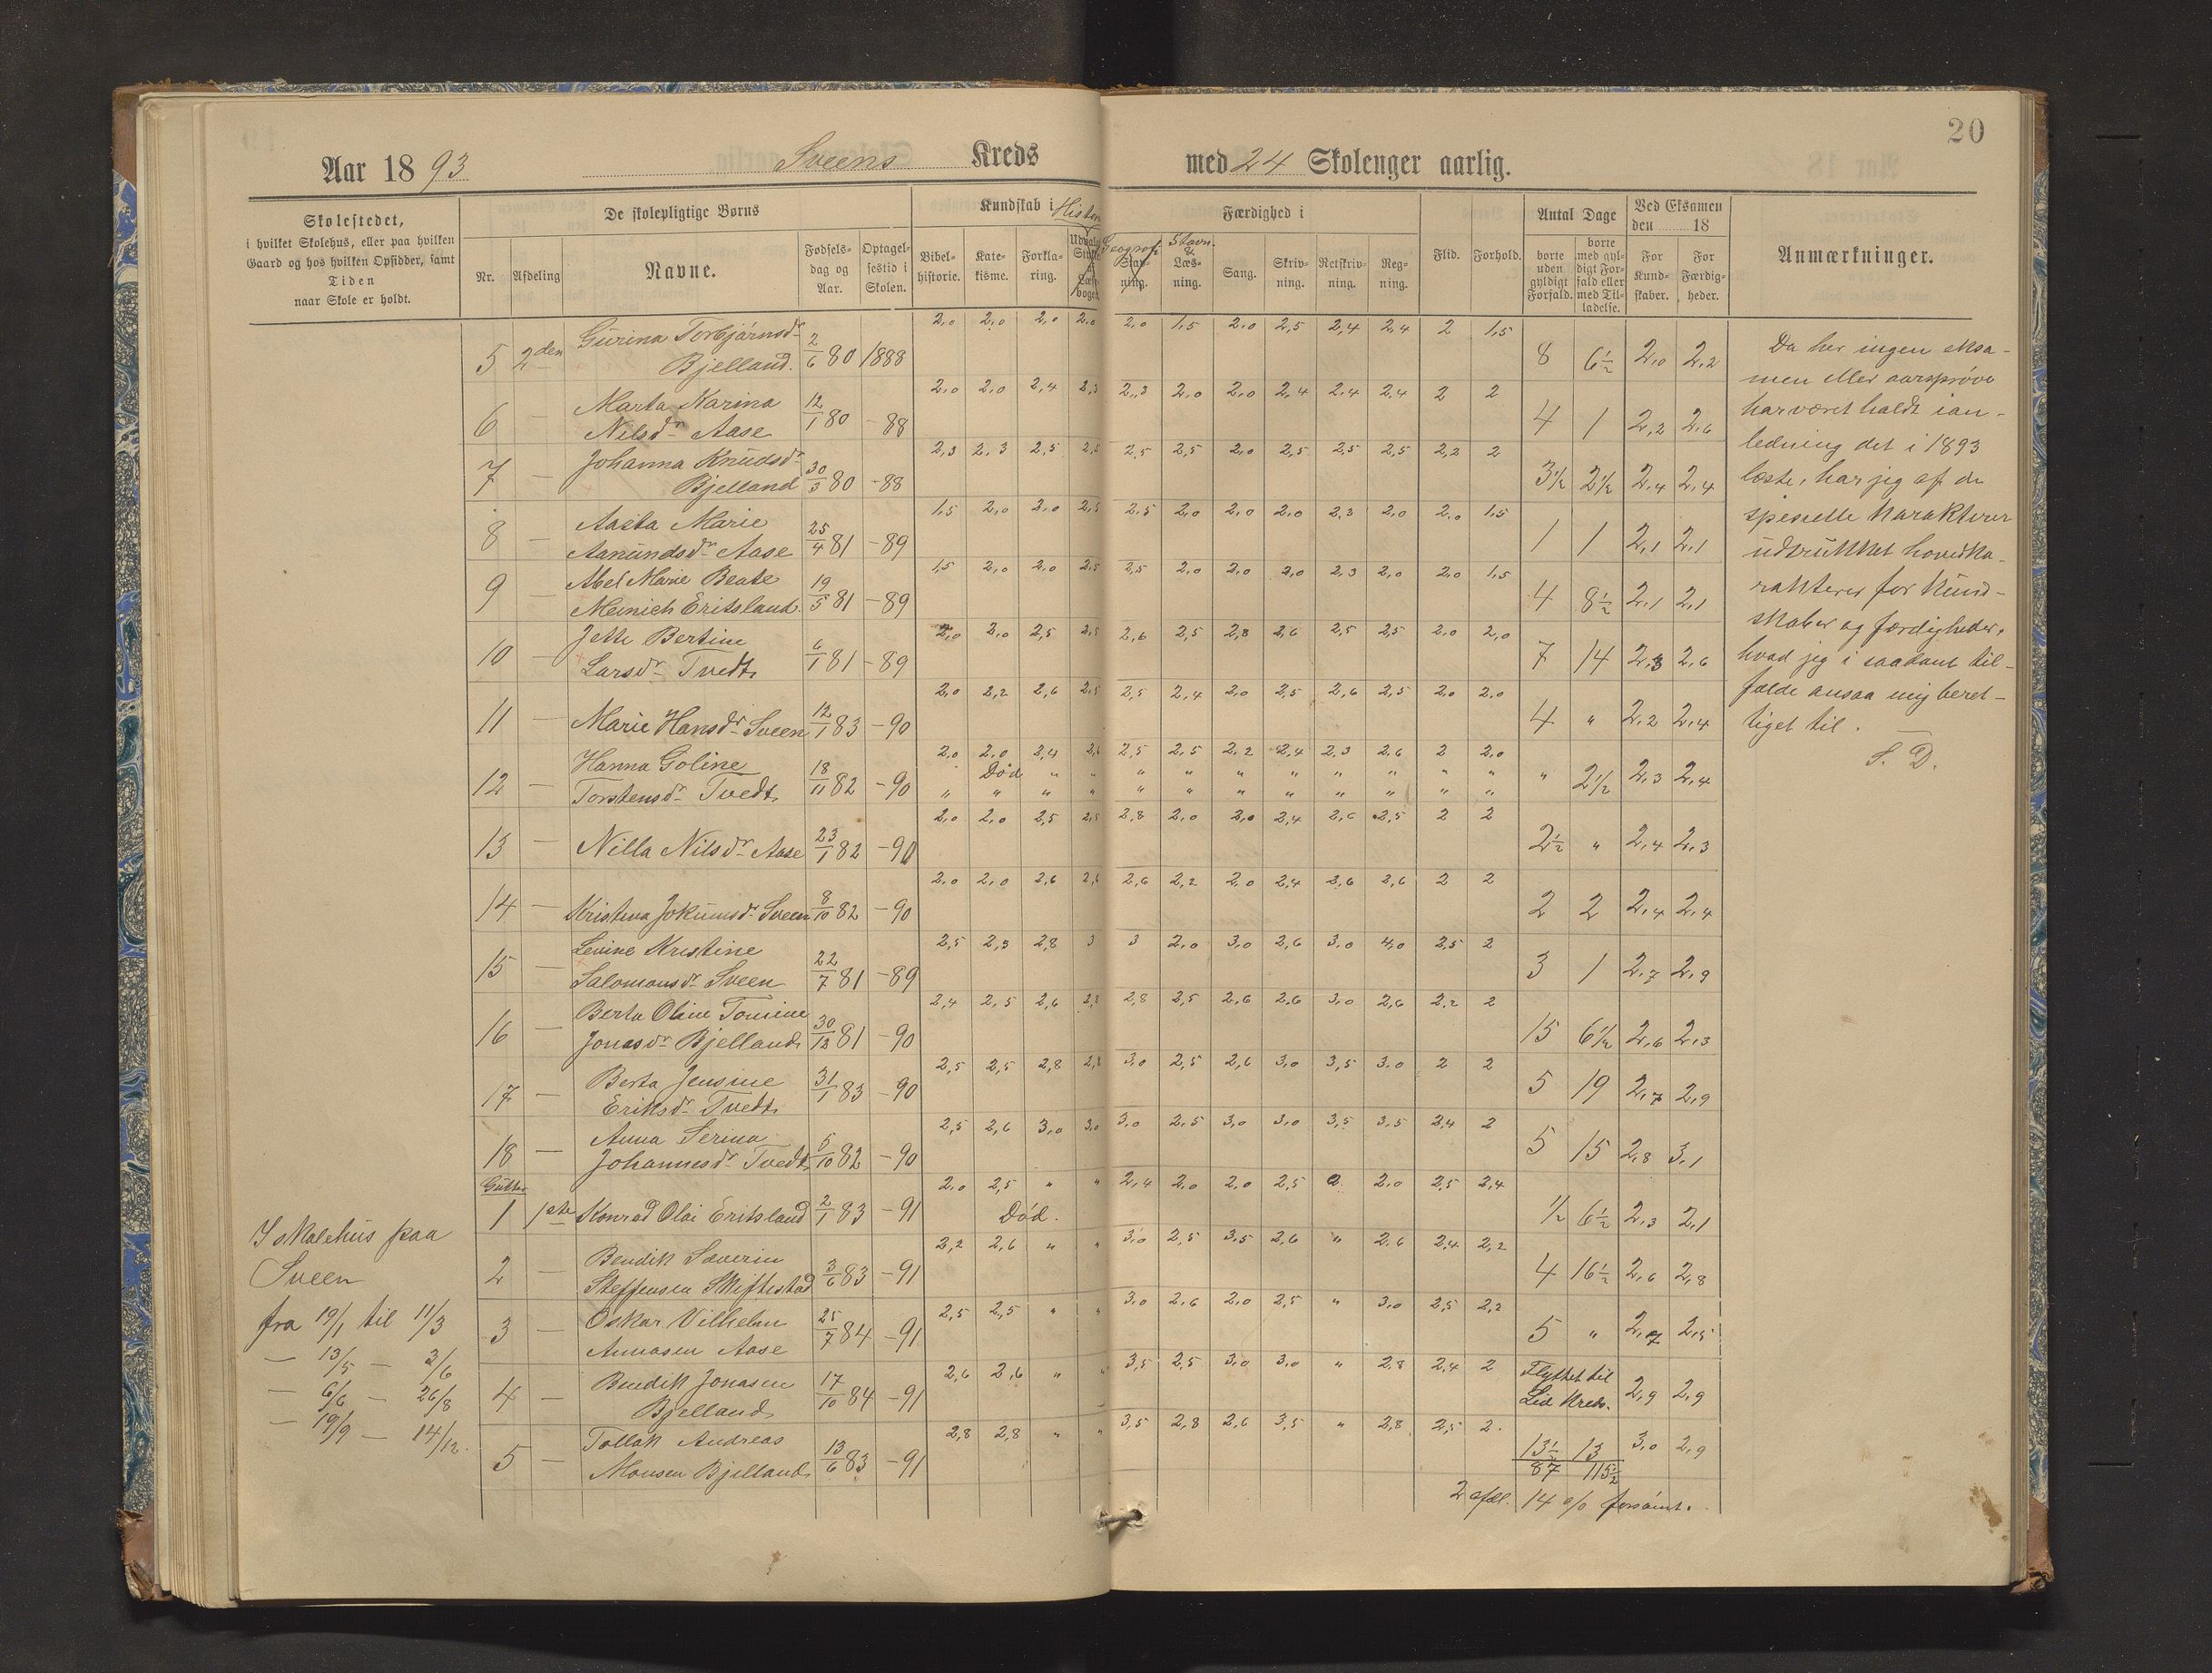 20
Aar 1893 Sveens Kreds med 24 Skolenger aarlig.
Skolestedet,
i hvilket Skolehus, eller paa hvilken
Gaard og hos hvilken Opsidder, samt
Tiden
naar Skole er holdt.
De skolepligtige Børns
Nr. Afdeling Navne. Fødsels-dag og Aar. Optagel-sestid i Skolen.
Kundskab i Histori
Bibel-historie. Kate-kisme. Forkla-ring.
Færdighed i
Geograf. Stavn. & Læs-ning. Sang. Skriv-ning. Retskriv-ning. Reg-ning.
Flid. Forhold.
Antal Dage
borte uden gyldigt Forfald. borte med gyl-digt For-fald eller med Til-ladelse.
Ved Eksamen den 18
For Kund-skaber. For Færdig-heder.
Anmærkninger.
5 2den Gurina Torbjørnsdr Bjelland. 2/6 80 1888 2,0 2,0 2,0 2,0 2,0 1,5 2,0 2,5 2,4 2,4 2 1,5 8 6½ 2,0 2,2
6 — Marta Karina Nilsdr Aase 12/1 80 - 88 2,0 2,0 2,4 2,3 2,3 2,0 2,0 2,4 2,4 2,4 2 2 4 1 2,2 2,6
7 — Johanna Knudsdr Bjelland 30/3 80 - 88 2,3 2,3 2,5 2,5 2,5 2,5 2,0 2,5 2,5 2,5 2,2 2 3½ 2½ 2,4 2,4
8 — Aasta Marie Aanundsdr Aase 25/4 81 - 89 1,5 2,0 2,0 2,5 2,5 2,0 2,0 2,0 2,3 2,0 2,0 1,5 1 1 2,1 2,1
9 — Abel Marie Beate Meinich Eritsland. 19/5 81 - 89 1,5 2,0 2,0 2,5 2,5 2,0 2,0 2,0 2,3 2,0 2,0 1,5 4 8½ 2,1 2,1
10 — Jette Bertine Larsdr Tvedt 6/1 81 - 89 2,0 2,0 2,5 2,5 2,6 2,5 2,8 2,6 2,5 2,5 2,0 2,0 7 14 2,3 2,6
11 — Marie Hansdr Sveen 12/1 83 - 90 2,0 2,2 2,6 2,5 2,5 2,4 2,0 2,5 2,6 2,5 2,0 2,0 4 " 2,2 2,4
12 — Hanna Goline Torstensdr Tvedt 18/11 82 - 90 2,0 2,0 2,4 2,6 2,5 2,5 2,2 2,4 2,3 2,6 2 2,0 " 2½ 2,3 2,4
Død " " " " " " " " " " "
" " " " " " " " " " " "
13 — Nilla Nilsdr Aase 23/1 82 - 90 2,0 2,0 2,5 2,5 2,8 2,0 2,0 2,4 2,6 2,5 2 2 2½ " 2,4 2,3
14 — Kristina Jokumsdr Sveen 8/10 82 - 90 2,0 2,0 2,6 2,6 2,6 2,2 2,0 2,4 2,6 2,6 2 2 2 2 2,4 2,4
15 — Levine Kristine Salomonsdr Sveen 22/7 81 - 89 2,5 2,3 2,8 3 3 2,0 3,0 2,6 3,0 4,0 2,5 2 3 1 2,7 2,9
16 — Berta Oline Tomine Jonasdr Bjelland 30/12 81 - 90 2,4 2,5 2,6 2,8 2,8 2,5 2,6 2,6 3,0 2,6 2,2 2 15 6½ 2,6 2,3
17 — Berta Jensine Eriksdr Tvedt 31/1 83 - 90 2,5 2,5 2,8 2,8 3,0 2,5 2,6 3,0 3,5 3,0 2 2 5 19 2,7 2,9
18 — Anna Serina Johannesdr Tvedt 5/10 82 - 90 2,5 2,6 3,0 3,0 3,0 2,5 3,0 3,0 3,5 3,5 2,4 2 5 15 2,8 3,1
Gutter
1 1ste Konrad Olai Eritsland 2/1 83 - 91 2,0 2,5 " " 2,4 2,0 2,0 2,5 2 2,0 2,5 2,4 ½ 6½ 2,3 2,1
Død.
2 — Bendik Severin Steffensen Skiftestad 3/6 83 - 91 2,2 2,6 " " 3,0 2,5 3,5 2,6 " 2,6 2,4 2,2 4 16½ 2,6 2,8
3 — Oskar Vilhelm Annasen Aase 25/7 84 - 91 2,5 2,5 " " 3,0 2,6 2,0 2,5 " 3,0 2,5 2,2 5 " 2,7 2,5
4 — Bendik Jonasen Bjelland 17/10 84 - 91 2,6 2,6 " " 3,5 2,5 3,0 3,0 " 2,8 2,4 2 Flyttet til Lid Kreds. 2,9 2,9
5 — Tollak Andreas Monsen Bjelland 13/6 83 - 91 2,8 2,8 " " 3,5 2,8 2,6 3,5 " 2,8 2,5 2. 13½ 13 3,0 2,9
87 115½
2 afdl. 14 o/o forsømt.
I skolehus paa
Sveen
fra 19/1 til 11/3
— 13/5 — 3/6
— 6/6 — 26/8
— 19/9 — 14/12.
Da her ingen eksa-
men eller aarsprøve
har været holdt i an-
ledning det i 1893
læste, har jeg af de
specielle karakterer
udtrukket hovedka-
rakterer for kund-
skaber og færdigheder,
hvad jeg i saadant til-
fælde ansaa mig beret-
tiget til. —
S. D.